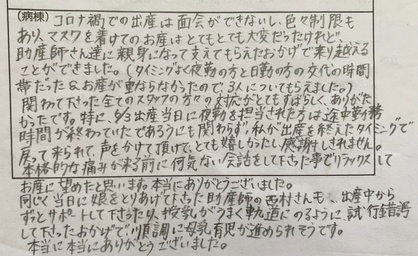 (病棟) コロナ禍での出産は面会ができないし、色々制限も
あり、マスクを着けてのお産はとてもとても大変だったけれど、
助産師さん達に親身になって支えてもらえたおかげで乗り越える
ことができました。(タイミングよく夜勤の方と日勤の方の交代の時間
帯だった&お産が重ならなかったので、3人についてもらえました。)
関わって下さった全てのスタッフの方々の対応がとてもすばらしく、ありがた
かったです。特に、出産当日に夜勤を担当された方は
時間が終わっていたであろうにも関わらず、私が出産を終えたタイミングで
戻って来られて、声をかけて頂けて、とても嬉しかったし、感謝しきれません。
本格的な痛みが来る前に何気ない会話をして下さった事でリラックスして
お産に望めたと思います。本当にありがとうございました。
同じく当日に娘をとりあげて下さった助産師の西村さんも、出産中から
ずっとサポートして下さったり、授乳がうまく軌道にのるように試行錯誤
して下さったおかげで順調に母乳育児が進められそうです。
本当に本当にありがとうございました。